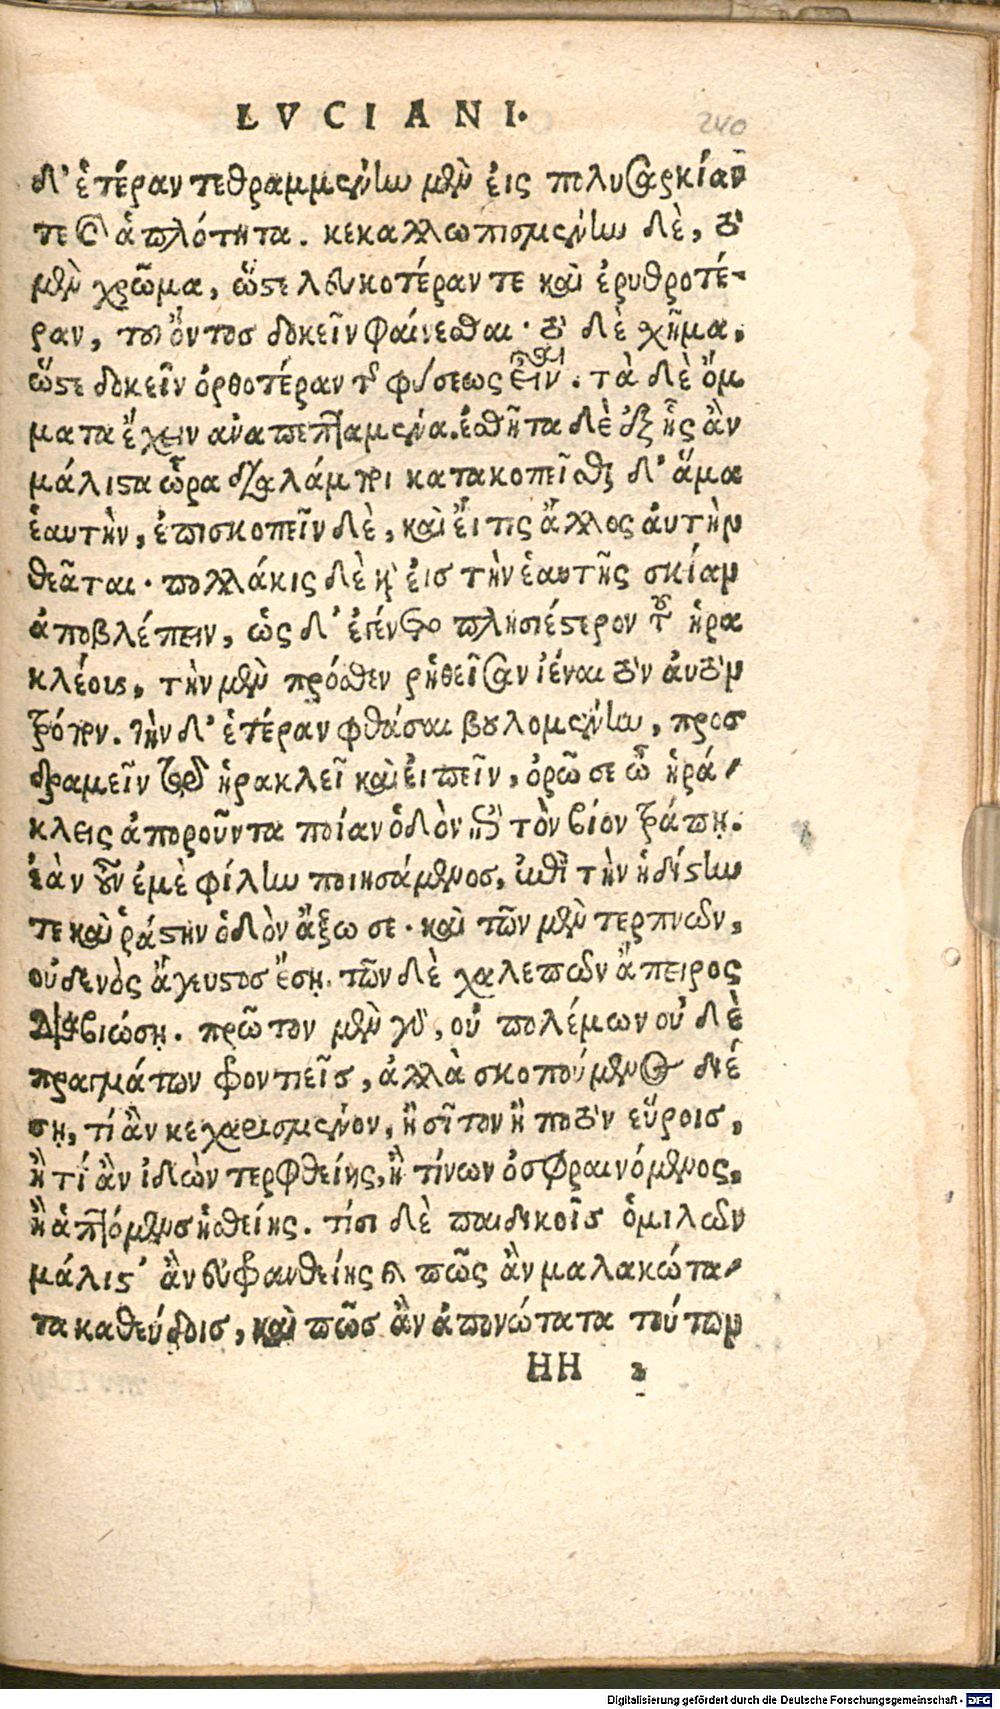 LVCIANI.
240
δ' ἑτέραν τεθραμμένην μὲν εἰς πολυσαρκίαν
τε καὶ ἁπλότητα. κεκαλλωπισμένην δὲ, τὸ
μὲν χρῶμα, ὥστε λευκοτέραν τε καὶ ἐρυθροτέ-
ραν, τοῦ ὄντος δοκεῖν φαίνεσθαι· τὸ δὲ χῆμα,
ὥστε δοκεῖν ὀρθοτέραν τῆς φύσεως εἶναι. τὰ δὲ ὄμ
ματα ἔχειν ἀναπεπταμένα. ἐσθῆτα δὲ ἐξ ἧς ἂν
μάλιστα ὥρα διαλάμποι κατακοπεῖσθαι δ' ἅμα
ἑαυτὴν, ἐπισκοπεῖν δὲ, καὶ εἴ τις ἄλλος αὐτὴν
θεᾶται. πολλάκις δὲ καὶ εἰς τὴν ἑαυτῆς σκίαν
ἀποβλέπειν, ὡς δ' ἐγένοντο πλησιέστερον τοῦ ἡρα
κλέους, τὴν μὲν πρόσθεν ῥηθεῖσαν ἰέναι τὸν αὐτὸν
τρόπον. τὴν δ' ἑτέραν φθάσαι βουλομένην, προσ
δραμεῖν τῷ ἡρακλεῖ καὶ εἰπεῖν, ὁρῶ σε ὦ ἡρά-
κλεις ἀποροῦντα ποίαν ὁδὸν ἐπὶ τὸν βίον τράπῃ.
ἐὰν οὖν ἐμὲ φίλην ποιησάμενος, ἐπὶ τὴν ἡδίστην
τε καὶ ῥάστην ὁδὸν ἄξω σε. καὶ τῶν μὲν τερπνῶν,
οὐδενὸς ἄγευστος ἔσῃ. τῶν δὲ χαλεπῶν ἄπειρος
διαβιώσῃ. πρῶτον μὲν γὰρ, οὐ πολέμων οὐδὲ
πραγμάτων φροντιεῖς, ἀλλὰ σκοπούμενος διέ
σῃ, τί ἂν κεχαρισμένον, ἢ σῖτον ἢ ποτὸν εὕροις,
ἢ τί ἂν ἰδὼν τερφθείης, ἢ τίνων ὀσφραινόμενος,
ἢ ἁπτόμενος ἡσθείης. τίσι δὲ παιδικοῖς ὁμιλῶν
μάλιστ' ἂν εὐφρανθείης καὶ πῶς ἂν μαλακώτα-
τα καθεύδοις, καὶ πῶς ἂν ἀπονώτατα τούτων
HH 2
Digitalisierung gefördert durch die Deutsche Forschungsgemeinschaft - DFG